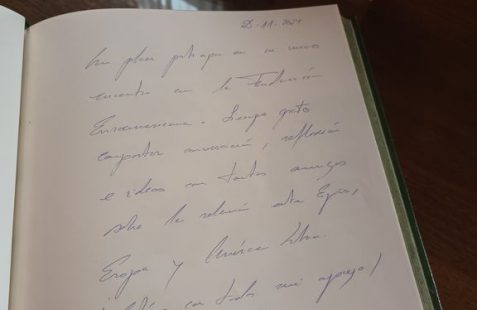 25-11-2021
Un placer participar en un nuevo
encuentro en la Fundación
Euroamericana. Siempre grato
compartir conversación, reflexión
e ideas con tantos amigos
sobre la relación entre España,
Europa y América Latina.
con todo mi aprecio,